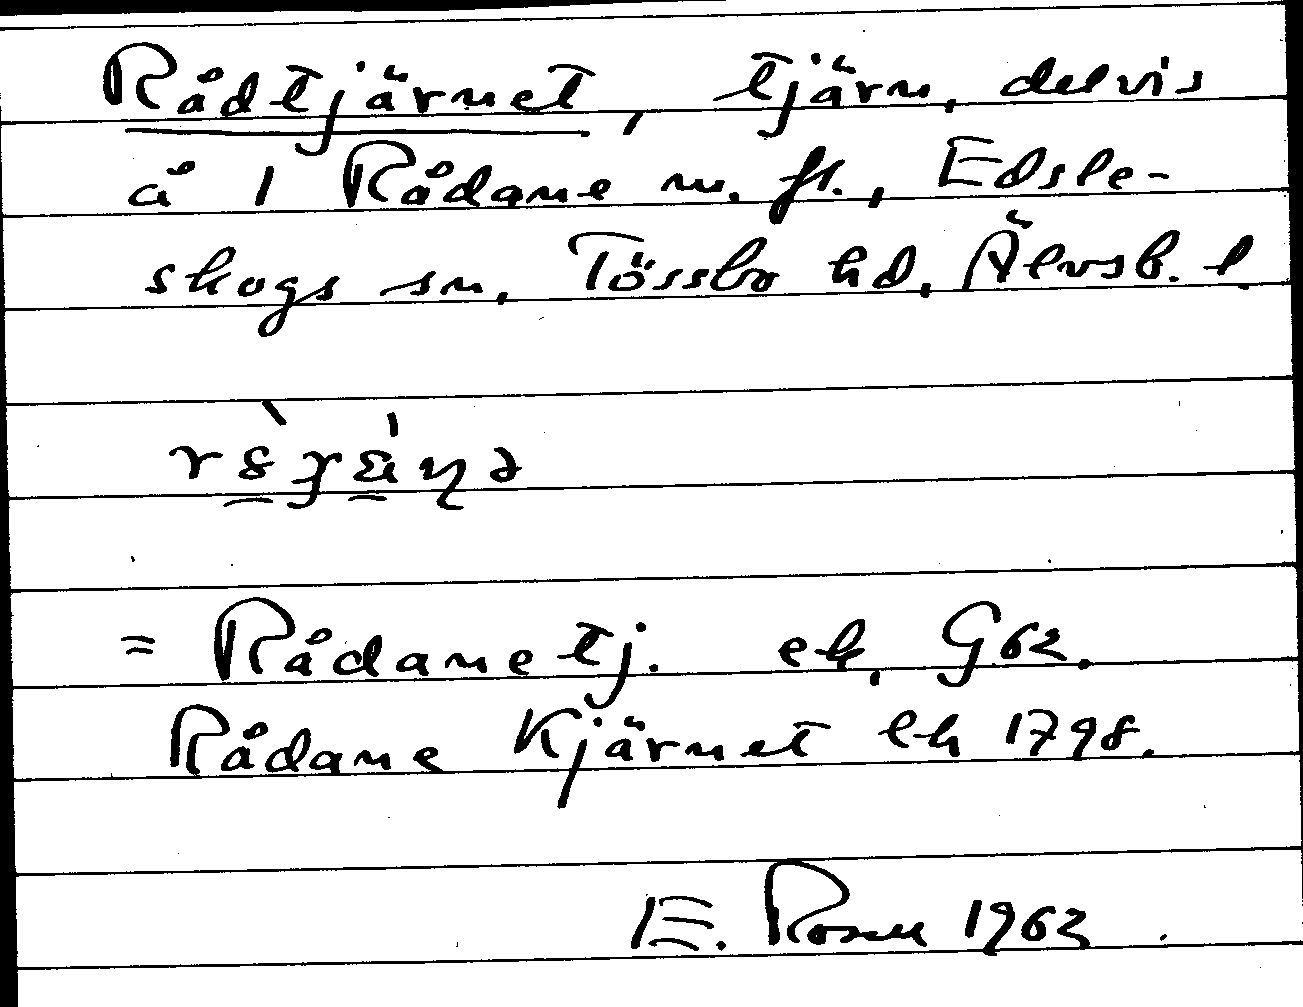 Rådtjärnet, tjärn, delvis
å 1 Rådane m. fl., Edsle-
skogs sn, Tössbo hd, Älvsb. l.
= Rådanetj. ek, G62.
Rådane Kjärnet lh 1798.
E. Rosen 1962